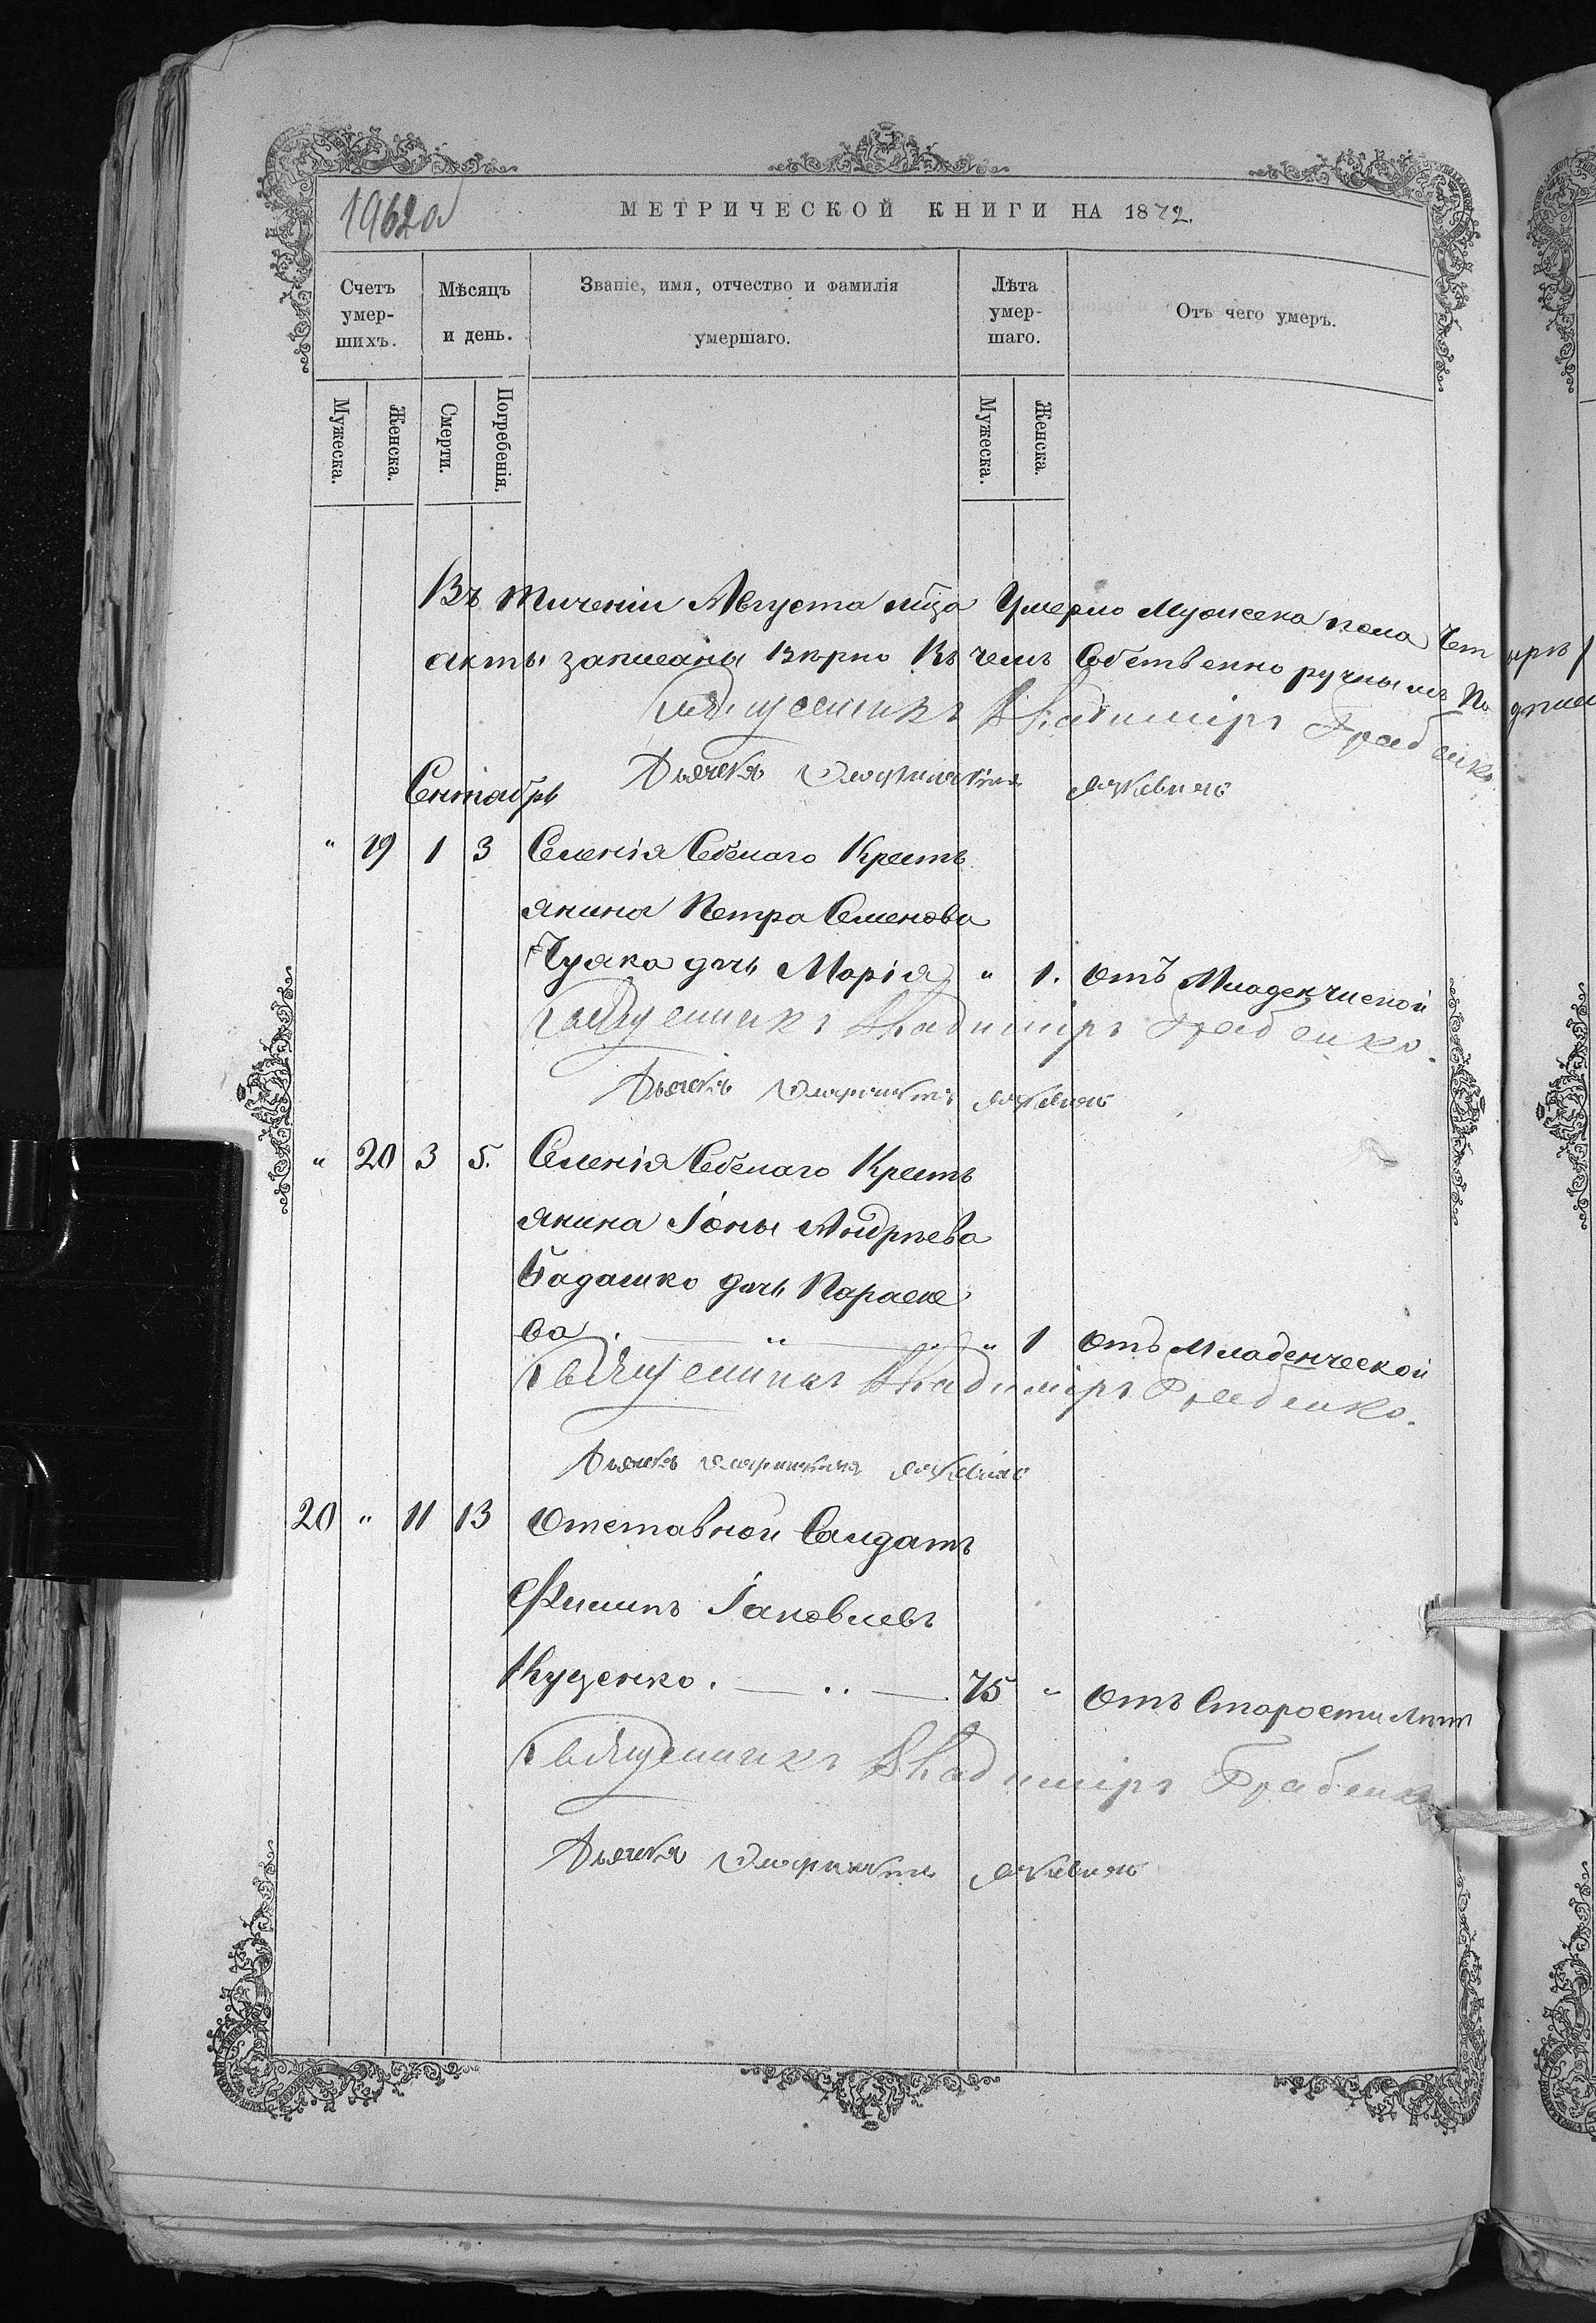 1962
МЕТРИЧЕСКОЙ КНИГИ НА 1872.
Счетъ умер-шихъ.
Мѣсяцъ и день.
Званіе, имя, отчество и фамилія умершаго.
Лѣта умер-шаго.
Отъ чего умеръ.
Мужеска.
Женска.
Смерти.
Погребенія.
Мужеска.
Женска.
Въ течении Августа Умерло Мужеска пола Четыре
акты записаны Вѣрно Въ чемъ Собственно ручнымъ Подпи
Священникъ Владиміръ Грабенко
Дьячекъ
Сентябрь
" 19 1 3 Селенія Сѣбенаго Кресть
янина Петра Семенова
Чуяка дочь Марія " 1. отъ Младенчиской
Священникъ Владиміръ Грабенко.
Дьячекъ
" 20 3 5. Селенія Сѣбенаго Кресть
янина Іоны Андрѣева
Бадашко дочь Параске
ва " 1 отъ Младенческой
Священникъ Владиміръ Грабенко.
Дьячекъ
20 " 11 13 Отставной Салдатъ
Филипъ Іаковлевъ
Куценко. 75 " отъ Старости Лѣтъ
Священникъ Владиміръ Грабенко
Дьячекъ